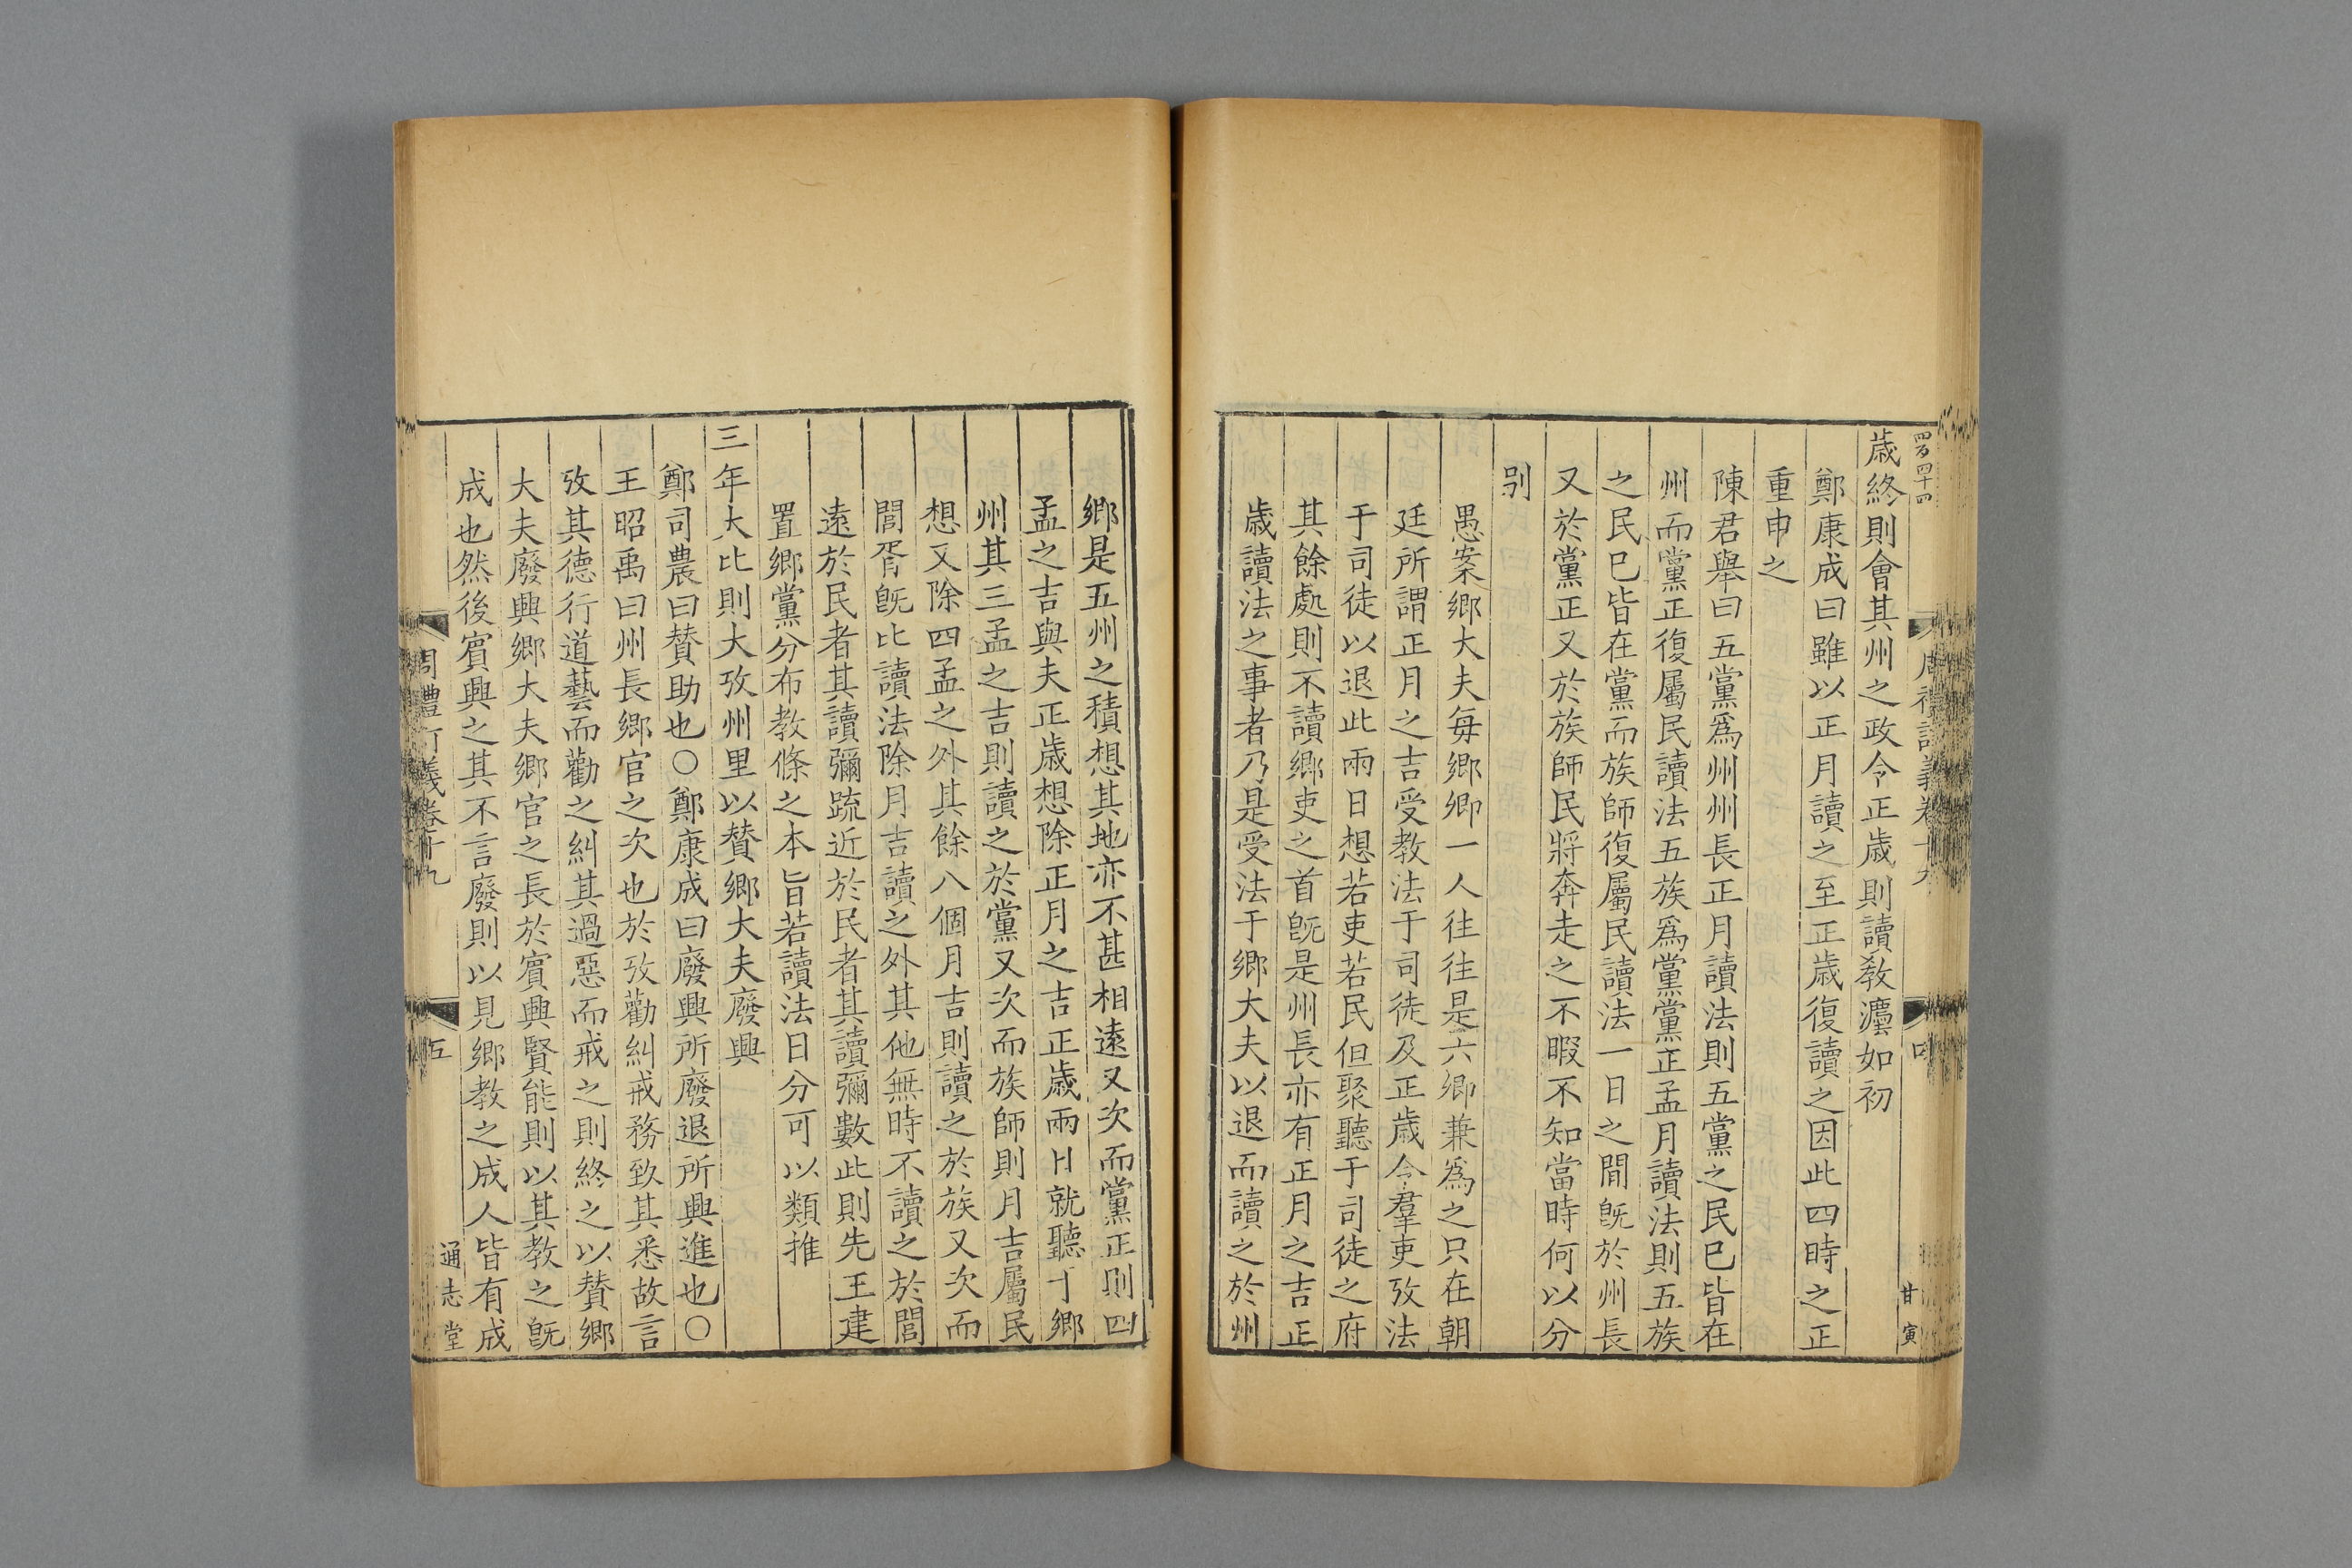 四百四十四
歳終則會其州之政令正歳則讀敎灋如初
鄭康成曰雖以正月讀之至正歳復讀之因此四時之正
重申之
陳君舉曰五黨爲州州長正月讀法則五黨之民已皆在
州而黨正復屬民讀法五族爲黨黨正孟月讀法則五族
之民已皆在黨而族師復屬民讀法一日之間旣於州長
又於黨正又於族師民將奔走之不暇不知當時何以分
别
愚案鄉大夫每鄉卿一人往往是六卿兼爲之只在朝
廷所謂正月之吉受教法于司徒及正歳令羣吏攷法
于司徒以退此兩日想若吏若民但聚聽于司徒之府
其餘處則不讀鄉吏之首旣是州長亦有正月之吉正
歳讀法之事者乃是受法于鄉大夫以退而讀之於州
周禮訂義卷十九
甘寅
鄉是五州之積想其地亦不甚相遠又次而黨正則四
孟之吉與夫正歳想除正月之吉正歳兩日就聽于鄉
州其三孟之吉則讀之於黨又次而族師則月吉屬民
想又除四孟之外其餘八個月吉則讀之於族又次而
閭胥旣比讀法除月吉讀之外其他無時不讀之於閭
遠於民者其讀彌疏近於民者其讀彌數此則先王建
置鄉黨分布教條之本旨若讀法日分可以類推
三年大比則大攷州里以贊鄉大夫廢興
鄭司農曰贊助也○鄭康成曰廢興所廢退所興進也○
王昭禹曰州長鄉官之次也於攷勸糾戒務致其悉故言
攷其德行道藝而勸之糾其過惡而戒之則終之以贊鄉
大夫廢興鄉大夫鄉官之長於賓興賢能則以其教之旣
成也然後賓興之其不言廢則以見鄉教之成人皆有成
周禮訂義卷十九
五
通志堂